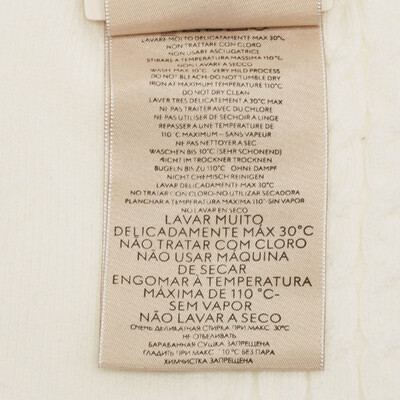 LAVARE MOLTO DELICATAMENTE MAX 30°C
NON TRATTARE CON CLORO
NON USARE ASCIUGATRICE
STIRARE A TEMPERATURA MASSIMA 110°C
NON LAVARE A SECCO
WASH MAX 30°C VERY MILD PROCESS
DO NOT BLEACH-DO NOT TUMBLE DRY
IRON AT MAXIMUM TEMPERATURE 110°C
DO NOT DRY CLEAN
LAVER TRES DELICATEMENT A 30°C MAX
NE PAS TRAITER AVEC DU CHLORE
NE PAS UTILISER DE SECHOIR A LINGE
REPASSER A UNE TEMPERATURE DE
110°C MAXIMUM – SANS VAPEUR
NE PAS NETTOYER A SEC
WASCHEN BIS 30°C (SEHR SCHONEND)
NICHT IM TROCKNER TROCKNEN
BUGELN BIS ZU 110°C OHNE DAMPF
NICHT CHEMISCH REINIGEN
LAVAR DELICADAMENTE MAX 30°C
NO TRATAR CON CLORO-NO UTILIZAR SECADORA
PLANCHAR A TEMPERATURA MAXIMA 110°-SIN VAPOR
NO LAVAR EN SECO
LAVAR MUITO
DELICADAMENTE MÁX 30°C
NÃO TRATAR COM CLORO
NÃO USAR MÁQUINA
DE SECAR
ENGOMAR À TEMPERATURA
MÁXIMA DE 110 °C-
SEM VAPOR
NÃO LAVAR A SECO
ОЧЕНЬ ДЕЛИКАТНАЯ СТИРКА ПРИ МАКС. 30°C
НЕ ОТБЕЛИВАТЬ
БАРАБАННАЯ СУШКА ЗАПРЕЩЕНА
ГЛАДИТЬ ПРИ МАКС. 110°C БЕЗ ПАРА
ХИМЧИСТКА ЗАПРЕЩЕНА